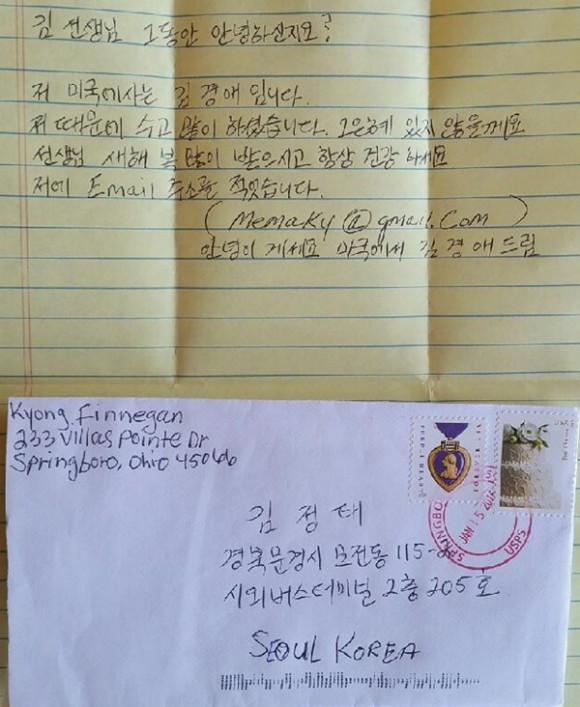 김 선생님 그동안 안녕하신지요?
저 미국에사는 김경애 입니다.
저 때문에 수고 많이 하셨습니다. 그은혜 잊지 않을께요
선생님 새해 복많이 받으시고 항상 건강 하세요
저에 Email 주소를 적었습니다.
(Memaky@gmail.Com)
안녕이 계세요 미국에서 김경애드림
Kyong Finnegan
233 Villas Pointe Dr
Springboro, Ohio 45066
PURPLE HEART
SPRINGBO
JAN 15
USPS
김정태
경북문경시 모전동 115-2
시외버스터미널 2층 205호
SEOUL KOREA